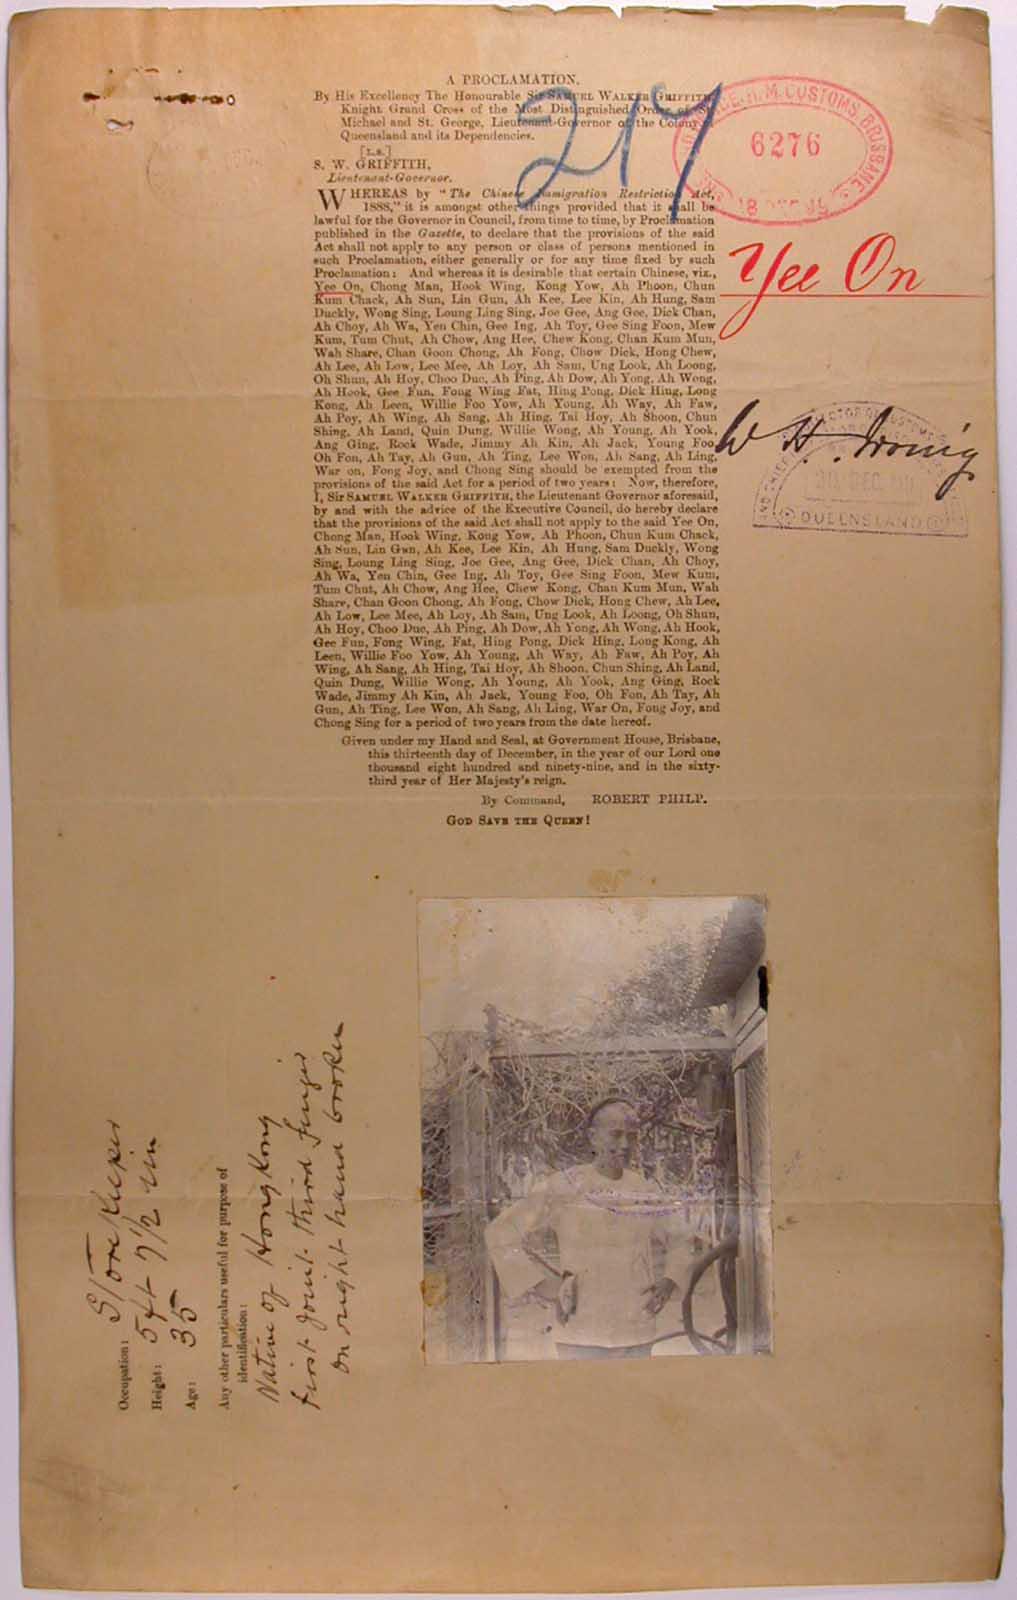 A PROCLAMATION.
By His Excellency The Honourable Sir SAMUEL WALKER GRIFFITH,
Knight Grand Cross of the Most Distinguished Order of St.
Michael and St. George, Lieutenant-Governor of the Colony of
Queensland and its Dependencies.
[L.S.]
S. W. GRIFFITH,
Lieutenant-Governor.
217
H.M. CUSTOMS, BRISBANE
6276
WHEREAS by "The Chinese Immigration Restriction Act,
1888," it is amongst other things provided that it shall be
lawful for the Governor in Council, from time to time, by Proclamation
published in the Gazette, to declare that the provisions of the said
Act shall not apply to any person or class of persons mentioned in
such Proclamation, either generally or for any time fixed by such
Proclamation: And whereas it is desirable that certain Chinese, viz.,
Yee On, Chong Man, Hook Wing, Kong Yow, Ah Phoon, Chun
Kum Chack, Ah Sun, Lin Gun, Ah Kee, Lee Kin, Ah Hung, Sam
Duckly, Wong Sing, Loung Ling Sing, Joe Gee, Ang Gee, Dick Chan,
Ah Choy, Ah Wa, Yen Chin, Gee Ing, Ah Toy, Gee Sing Foon, Mew
Kum, Tum Chut, Ah Chow, Ang Hee, Chew Kong, Chan Kum Mun,
Wah Share, Chan Goon Chong, Ah Fong, Chow Dick, Hong Chew,
Ah Lee, Ah Low, Lee Mee, Ah Loy, Ah Sam, Ung Look, Ah Loong,
Oh Shun, Ah Hoy, Choo Duc, Ah Ping, Ah Dow, Ah Yong, Ah Wong,
Ah Hook, Gee Fun, Fong Wing Fat, Hing Pong, Dick Hing, Long
Kong, Ah Leen, Willie Foo Yow, Ah Young, Ah Way, Ah Faw,
Ah Poy, Ah Wing, Ah Sang, Ah Hing, Tai Hoy, Ah Shoon, Chun
Shing, Ah Land, Quin Dung, Willie Wong, Ah Young, Ah Yook,
Ang Ging, Rock Wade, Jimmy Ah Kin, Ah Jack, Young Foo,
Oh Fon, Ah Tay, Ah Gun, Ah Ting, Lee Won, Ah Sang, Ah Ling,
War on, Fong Joy, and Chong Sing should be exempted from the
provisions of the said Act for a period of two years: Now, therefore,
I, Sir SAMUEL WALKER GRIFFITH, the Lieutenant Governor aforesaid,
by and with the advice of the Executive Council, do hereby declare
that the provisions of the said Act shall not apply to the said Yee On,
Chong Man, Hook Wing, Kong Yow, Ah Phoon, Chun Kum Chack,
Ah Sun, Lin Gun, Ah Kee, Lee Kin, Ah Hung, Sam Duckly, Wong
Sing, Loung Ling Sing, Joe Gee, Ang Gee, Dick Chan, Ah Choy,
Ah Wa, Yen Chin, Gee Ing, Ah Toy, Gee Sing Foon, Mew Kum,
Tum Chut, Ah Chow, Ang Hee, Chew Kong, Chan Kum Mun, Wah
Share, Chan Goon Chong, Ah Fong, Chow Dick, Hong Chew, Ah Lee,
Ah Low, Lee Mee, Ah Loy, Ah Sam, Ung Look, Ah Loong, Oh Shun,
Ah Hoy, Choo Duc, Ah Ping, Ah Dow, Ah Yong, Ah Wong, Ah Hook,
Gee Fun, Fong Wing, Fat, Hing Pong, Dick Hing, Long Kong, Ah
Leen, Willie Foo Yow, Ah Young, Ah Way, Ah Faw, Ah Poy, Ah
Wing, Ah Sang, Ah Hing, Tai Hoy, Ah Shoon, Chun Shing, Ah Land,
Quin Dung, Willie Wong, Ah Young, Ah Yook, Ang Ging, Rock
Wade, Jimmy Ah Kin, Ah Jack, Young Foo, Oh Fon, Ah Tay, Ah
Gun, Ah Ting, Lee Won, Ah Sang, Ah Ling, War On, Fong Joy, and
Chong Sing for a period of two years from the date hereof.
Given under my Hand and Seal, at Government House, Brisbane,
this thirteenth day of December, in the year of our Lord one
thousand eight hundred and ninety-nine, and in the sixty-
third year of Her Majesty's reign.
By Command, ROBERT PHILP.
GOD SAVE THE QUEEN!
Yee On
W H. Irving
QUEENSLAND
Occupation: Store Keeper
Height: 5 ft 7 1/2 in
Age: 35
Any other particulars useful for purpose of
identification:
Native of Hong Kong
First joint third finger
on right hand broken